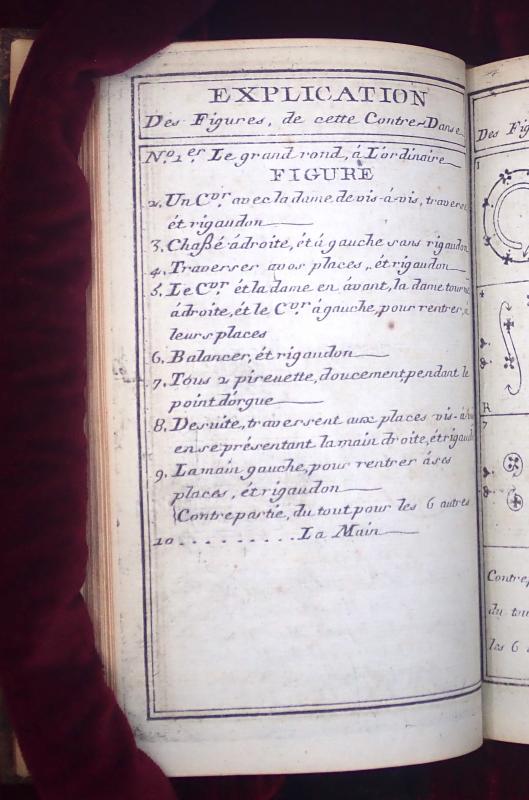 EXPLICATION
Des Figures, de cette Contre-Danse
N.º 1.er Le grand rond, á L'ordinaire
FIGURE
2. Un C.vr avec la dame de vis-á-vis, travers
ét rigaudon
3. Chaßé ádroite, ét á gauche sans rigaudon
4. Traverser a vos places, ét rigaudon
5. Le C.vr ét la dame en avant, la dame tourne
ádroite, ét le C.vr á gauche, pour rentrer, á
leurs places
6. Balancer, ét rigaudon
7. Tous 2 pirouette, doucement, pendant le
point d'orgue
8. De suite, traversent aux places vis-á-vis
en se présentant la main droite, ét rigaud
9. La main gauche, pour rentrer á ses
places, ét rigaudon
Contrepartie, du tout pour les 6 autres
10 .......... La Main
Des Fig
1
4
R
7
Contrep
du tou
les 6 a